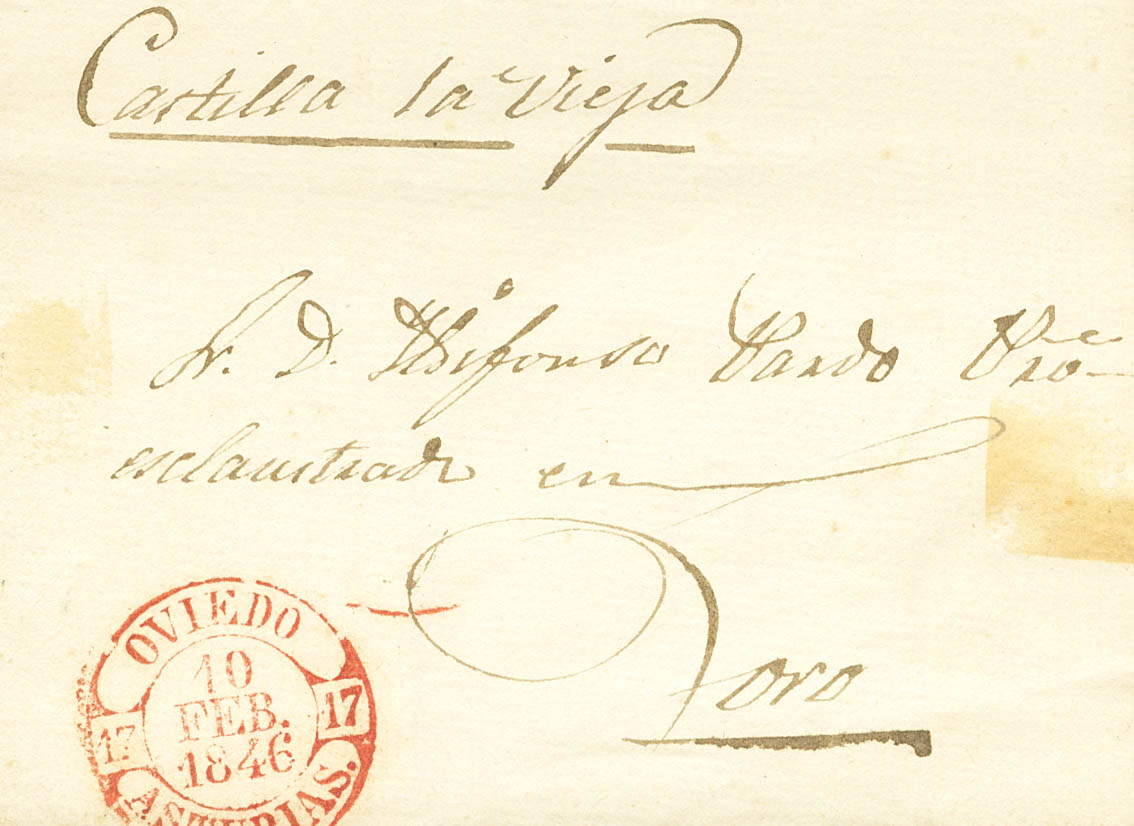 Castilla la Vieja
Sr. D. Ildifonso Pardo Pro
esclaustrado en
Toro
OVIEDO
10
FEB.
1846
17 17
ASTURIAS.